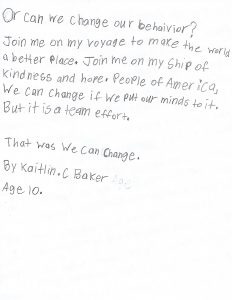 Or can we change our behaivior?
Join me on my voyage to make the world
a better place. Join me on my ship of
kindness and hope. People of America,
We can change if we put our minds to it.
But it is a team effort.
That was We Can Change.
By Kaitlin. C Baker
Age 10.